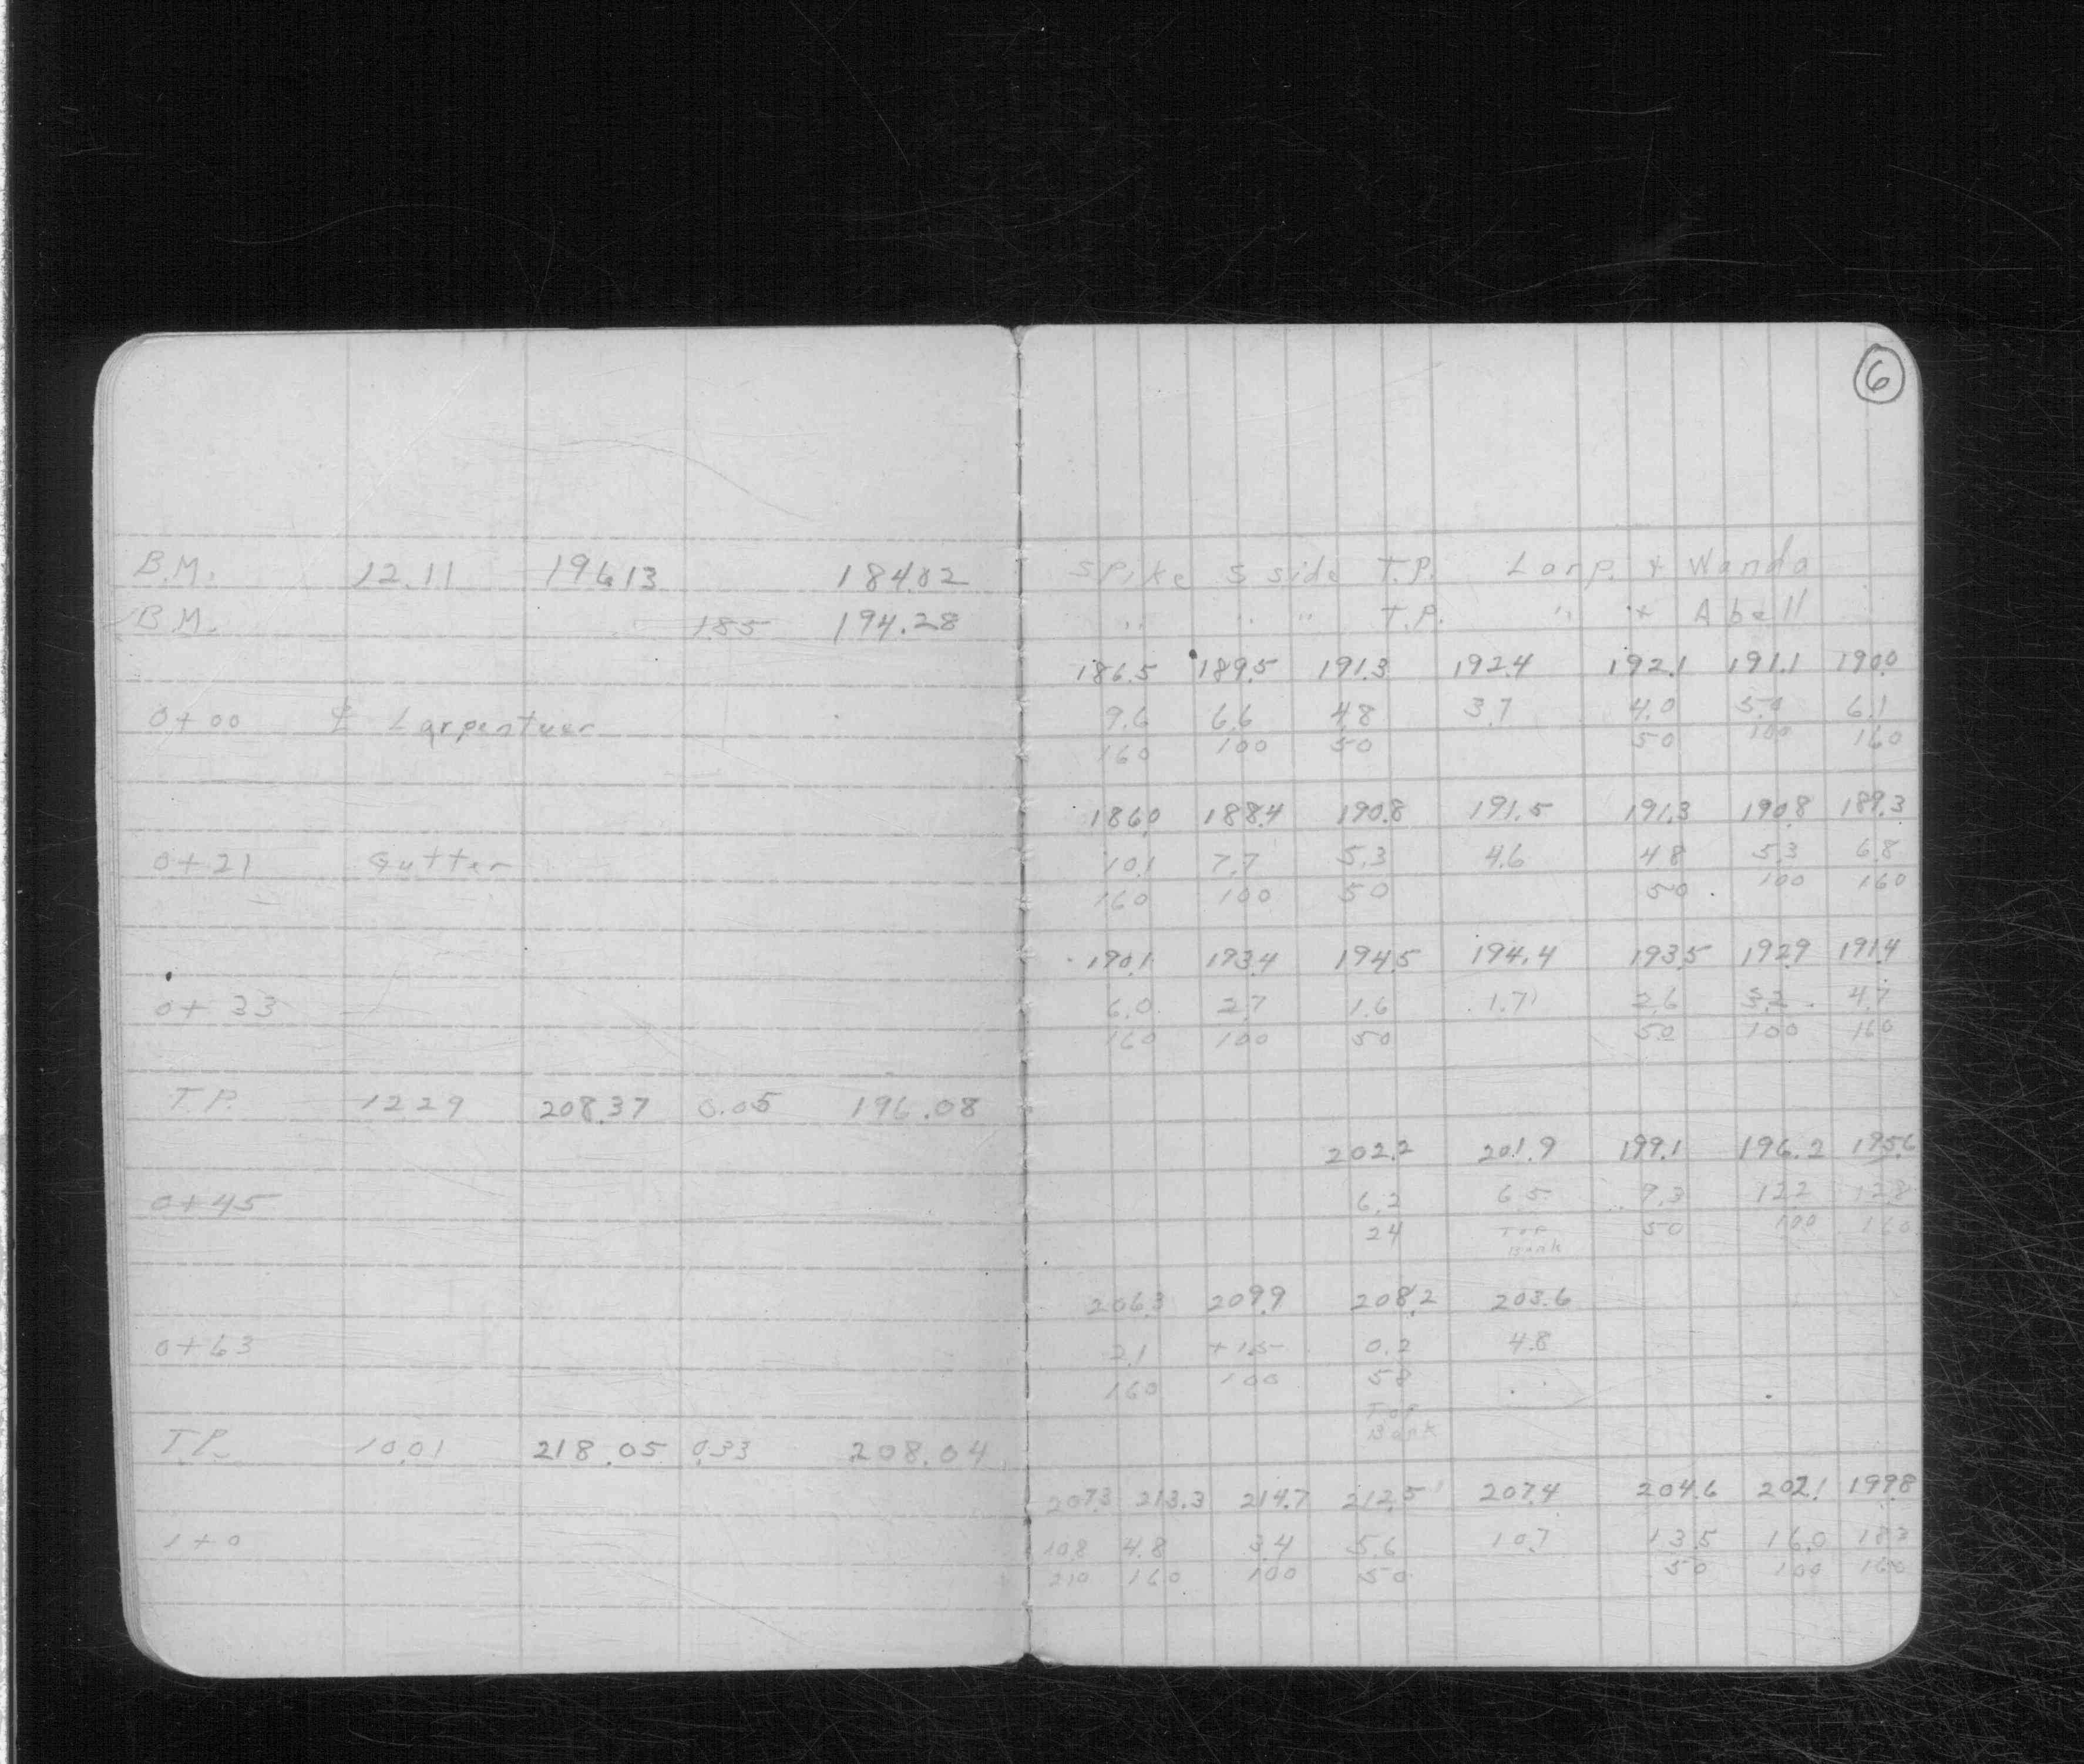 6
B.M. 12.11 196.13 184.02 Spike S side T.P. Larp. + Wanda
B.M. 1.85 194.28 " " " T.P. " + Abell
186.5 189.5 191.3 192.4 192.1 191.1 190.0
0+00 ℄ Larpentuer 9.6 6.6 4.8 3.7 4.0 5.0 6.1
160 100 50 50 100 160
186.0 188.4 190.8 191.5 191.3 190.8 189.3
0+21 Gutter 10.1 7.7 5.3 4.6 4.8 5.3 6.8
160 100 50 50 100 160
190.1 193.4 194.5 194.4 193.5 192.9 191.4
0+33 6.0 2.7 1.6 1.7 2.6 3.2 4.7
160 100 50 50 100 160
T.P. 12.29 208.37 0.05 196.08
202.2 201.9 199.1 196.2 195.6
0+45 6.2 6.5 9.3 12.2 12.8
24 Top 50 100 160
Bank
206.3 209.9 208.2 203.6
0+63 2.1 +1.5 0.2 4.8
160 100 58
Top
Bank
T.P. 10.01 218.05 0.33 208.04
207.3 213.3 214.7 212.5 207.4 204.6 202.1 199.8
1+0 10.8 4.8 3.4 5.6 10.7 13.5 16.0 18.3
210 160 100 50 50 100 160